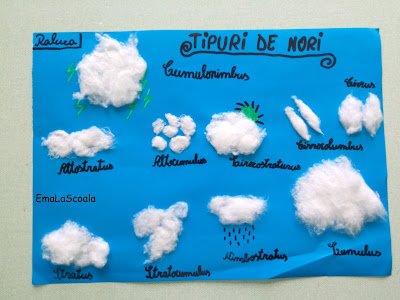 Raluca
TIPURI DE NORI
Cumulonimbus
Cirrus
Altostratus
Altocumulus
Cirrostratus
Cirrocolumbus
EmaLaScoala
Stratus
Stratocumulus
Nimbostratus
Cumulus